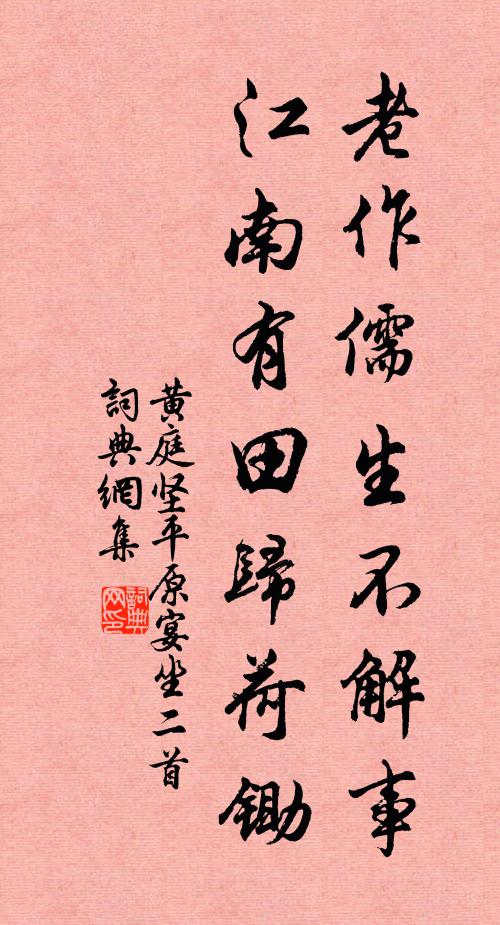 老作儒生不解事
江南有田歸荷鋤
黄庭坚平原宴坐二首
詞典網集
詞典网印